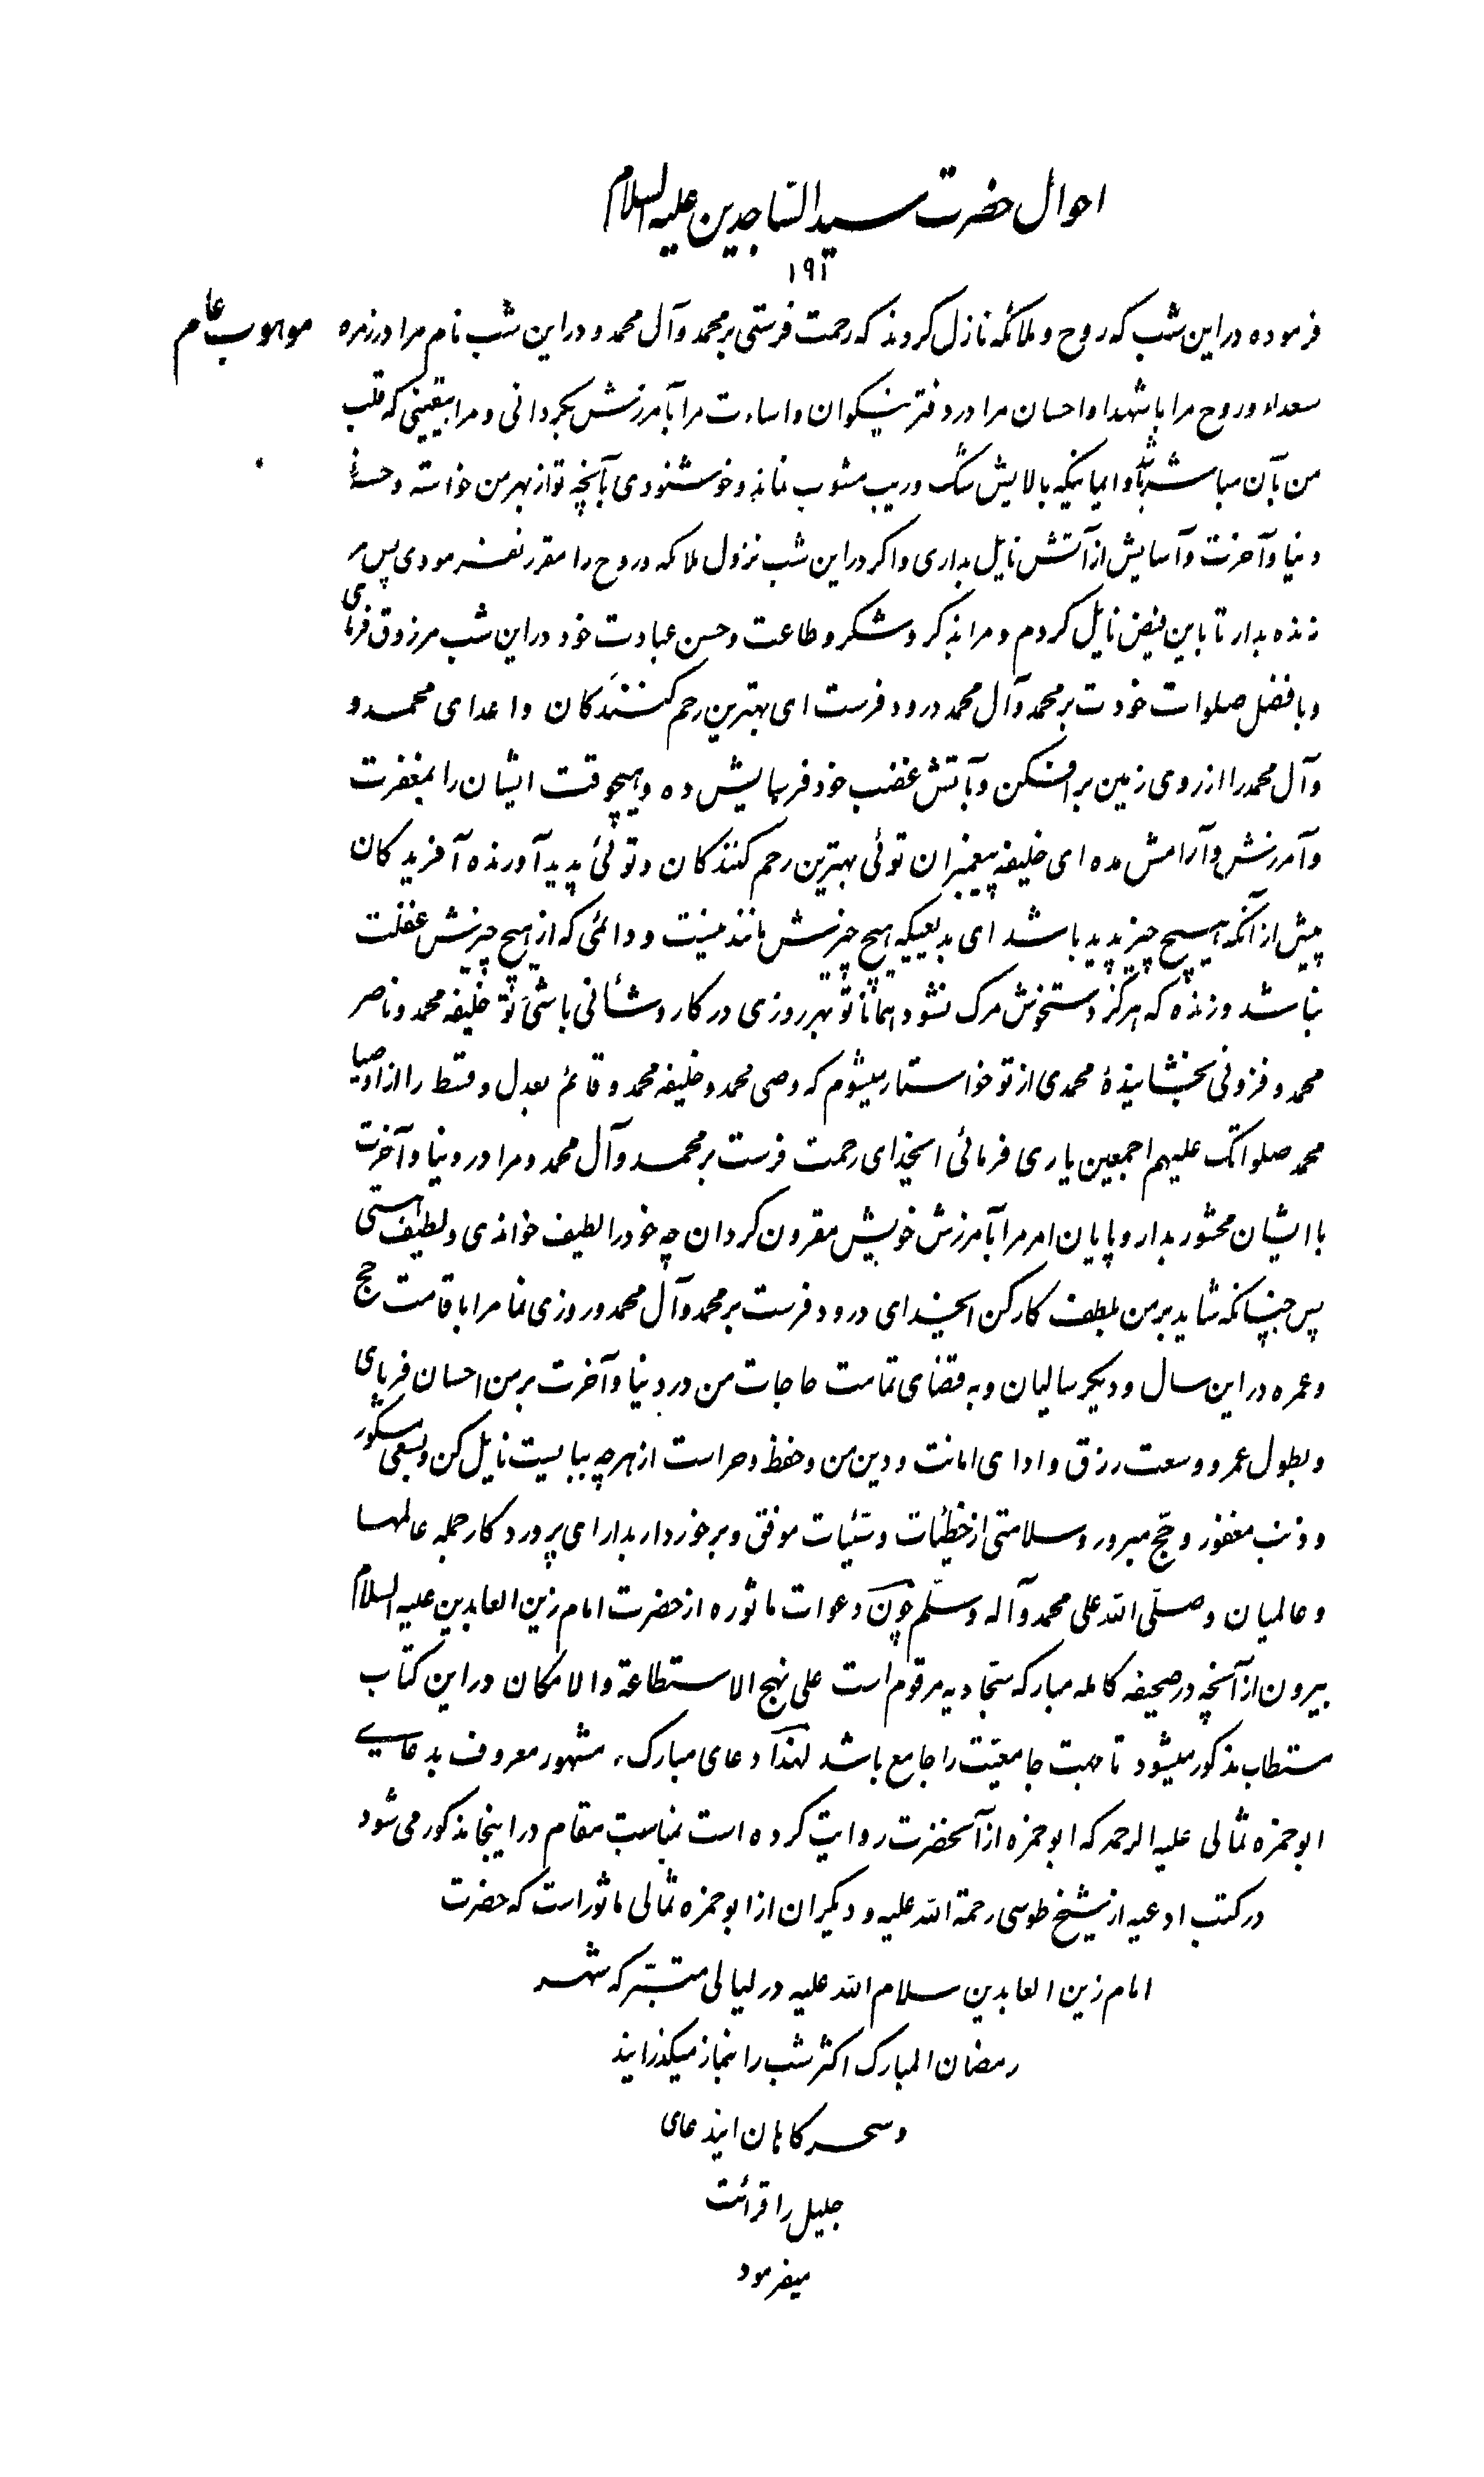 احوال حضرت سید الساجدین علیه السلام
۱۹۲
فرموده در این شب که روح و ملائکه نازل گردند که رحمت فرستی بر محمد و آل محمد و در این شب نام مرا در زمره
موهوب عام
سعداء و روح مرا با شهدا و احسان مرا در دفتر نیکوان و اساءت مرا بآمرزش بگردانی و مرا بیقینی که قلب
من بآن مباشر باشد و ایمانیکه بالایش شک و ریب مشوب نماند و خوشنودی بآنچه تو از بهر من خواسته و حسنه
دنیا و آخرت و آسایش از آتش نایل بداری و اگر در این شب نزول ملائکه و روح را مقرر نفرموده‌ی پس مر
زنده بدار تا باین فیض نایل گردم و مرا بذکر و شکر و طاعت و حسن عبادت خود در این شب مرزوق فرمای
و بافضل صلوات خودت بر محمد و آل محمد درود فرست ای بهترین رحم کنندگان و اعدای محمد و
و آل محمد را از روی زمین برافکن و بآتش غضب خود فرسایش ده و هیچوقت ایشان را بمغفرت
و آمرزش و آرامش مده ای خلیفه پیغمبران توئی بهترین رحم کنندگان و توئی پدید آورنده آفریدگان
پیش از آنکه هیچ چیز پدید باشد ای بدیعیکه هیچ چیزش مانند نیست و دائمی که از هیچ چیزش غفلت
نباشد و زنده که هرگز دستخوش مرگ نشود همانا تو بهر روزی در کار و شأنی باشی تو خلیفه محمد و ناصر
محمد و فزونی بخشاینده محمدی از تو خواستار میشوم که وصی محمد و خلیفه محمد و قائم بعدل و قسط را از اوصیا
محمد صلواتک علیهم اجمعین یاری فرمائی ایخدای رحمت فرست بر محمد و آل محمد و مرا در دنیا و آخرت
با ایشان محشور بدار و پایان امر مرا بآمرزش خویش مقرون گردان چه خود را لطیف خواندی و لطیف هستی
پس چنانکه شاید بر من بلطف کار کن ایخدای درود فرست بر محمد و آل محمد و روزی نما مرا باقامت حج
و عمره در این سال و دیگر سالیان و به قضای تمامت حاجات من در دنیا و آخرت بر من احسان فرمای
و بطول عمر و وسعت رزق و ادای امانت و دین من و حفظ و حراست از هرچه ببایست نایل کن و بسعی مشکور
و ذنب مغفور و حج مبرور و سلامتی از خطیئات و سیئات موفق و برخوردار بدار ای پروردگار جمله عالمها
و عالمیان و صلّی الله علی محمد و آله و سلّم چون دعوات ماثوره از حضرت امام زین العابدین علیه السلام
بیرون از آنچه در صحیفه کامله مبارکه سجّادیه مرقوم است علی نهج الاستطاعة والامکان در این کتاب
مستطاب مذکور میشود تا جهت جامعیّت را جامع باشد لهذا دعای مبارک، مشهور معروف بدعای
ابوحمزه ثمالی علیه الرحمه که ابوحمزه از آنحضرت روایت کرده است بمناسبت مقام در اینجا مذکور می شود
در کتب ادعیه از شیخ طوسی رحمة الله علیه و دیگران از ابوحمزه ثمالی ماثور است که حضرت
امام زین العابدین سلام الله علیه در لیالی متبرّکه شهر
رمضان المبارک اکثر شب را بنماز میگذرانید
و سحرگاهان ایندعای
جلیل را قرائت
میفرمود